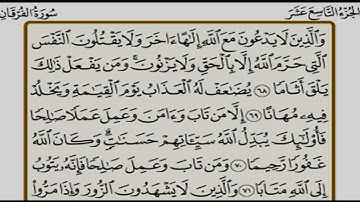 الجزء التاسع عشر
سورة الفرقان
وَالَّذِينَ لَا يَدْعُونَ مَعَ اللَّهِ إِلَٰهًا ءَاخَرَ وَلَا يَقْتُلُونَ النَّفْسَ
الَّتِي حَرَّمَ اللَّهُ إِلَّا بِالْحَقِّ وَلَا يَزْنُونَ ۚ وَمَن يَفْعَلْ ذَٰلِكَ
يَلْقَ أَثَامًا ٦٨ يُضَاعَفْ لَهُ الْعَذَابُ يَوْمَ الْقِيَامَةِ وَيَخْلُدْ
فِيهِ مُهَانًا ٦٩ إِلَّا مَن تَابَ وَءَامَنَ وَعَمِلَ عَمَلًا صَالِحًا
فَأُولَٰئِكَ يُبَدِّلُ اللَّهُ سَيِّئَاتِهِمْ حَسَنَاتٍ ۗ وَكَانَ اللَّهُ
غَفُورًا رَّحِيمًا ٧٠ وَمَن تَابَ وَعَمِلَ صَالِحًا فَإِنَّهُ يَتُوبُ
إِلَى اللَّهِ مَتَابًا ٧١ وَالَّذِينَ لَا يَشْهَدُونَ الزُّورَ وَإِذَا مَرُّوا